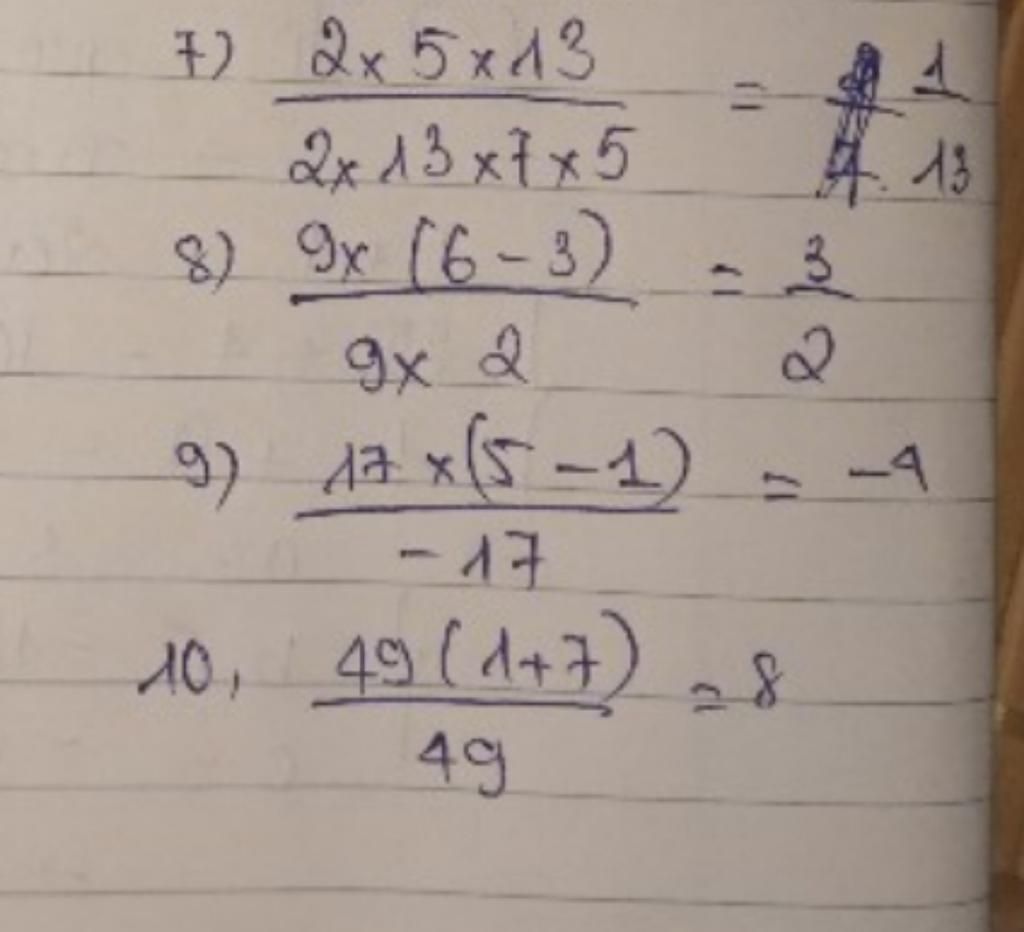 7) 2x 5 x 13 / 2x 13 x 7 x 5 = 1/13
8) 9x (6 - 3) / 9x 2 = 3/2
9) 17 x (5 - 1) / -17 = -4
10, 49 (1+7) / 49 = 8